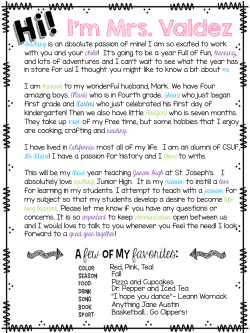 Hi! I'm Mrs. Valdez
Teaching is an absolute passion of mine! I am so excited to work
with you and your child! It's going to be a year full of fun, learning,
and lots of adventures and I can't wait to see what the year has
in store for us! I thought you might like to know a bit about me.
I am married to my wonderful husband, Mark. We have four
amazing boys. who is in fourth grade. who just began
first grade and who just celebrated his first day of
kindergarten! Then we also have little who is seven months.
They take up most of my free time, but some hobbies that I enjoy
are cooking, crafting and reading.
I have lived in California most all of my life. I am an alumni of CSUF.
I have a passion for history and I to write.
This will be my third year teaching Junior High at St. Joseph's. I
absolutely love teaching Junior High. It is my mission to instill a love
for learning in my students. I attempt to teach with a passion for
my subject so that my students develop a desire to become life-
long learners. Please let me know if you have any questions or
concerns. It is so important to keep communication open between us
and I would love to talk to you whenever you feel the need! I look
forward to a great year together!
A few OF MY favorites:
COLOR Red, Pink, Teal
SEASON Fall
FOOD Pizza and Cupcakes
DRINK Dr. Pepper and Iced Tea
SONG "I hope you dance"- Leann Womack
BOOK Anything Jane Austin
SPORT Basketball... Go Clippers!